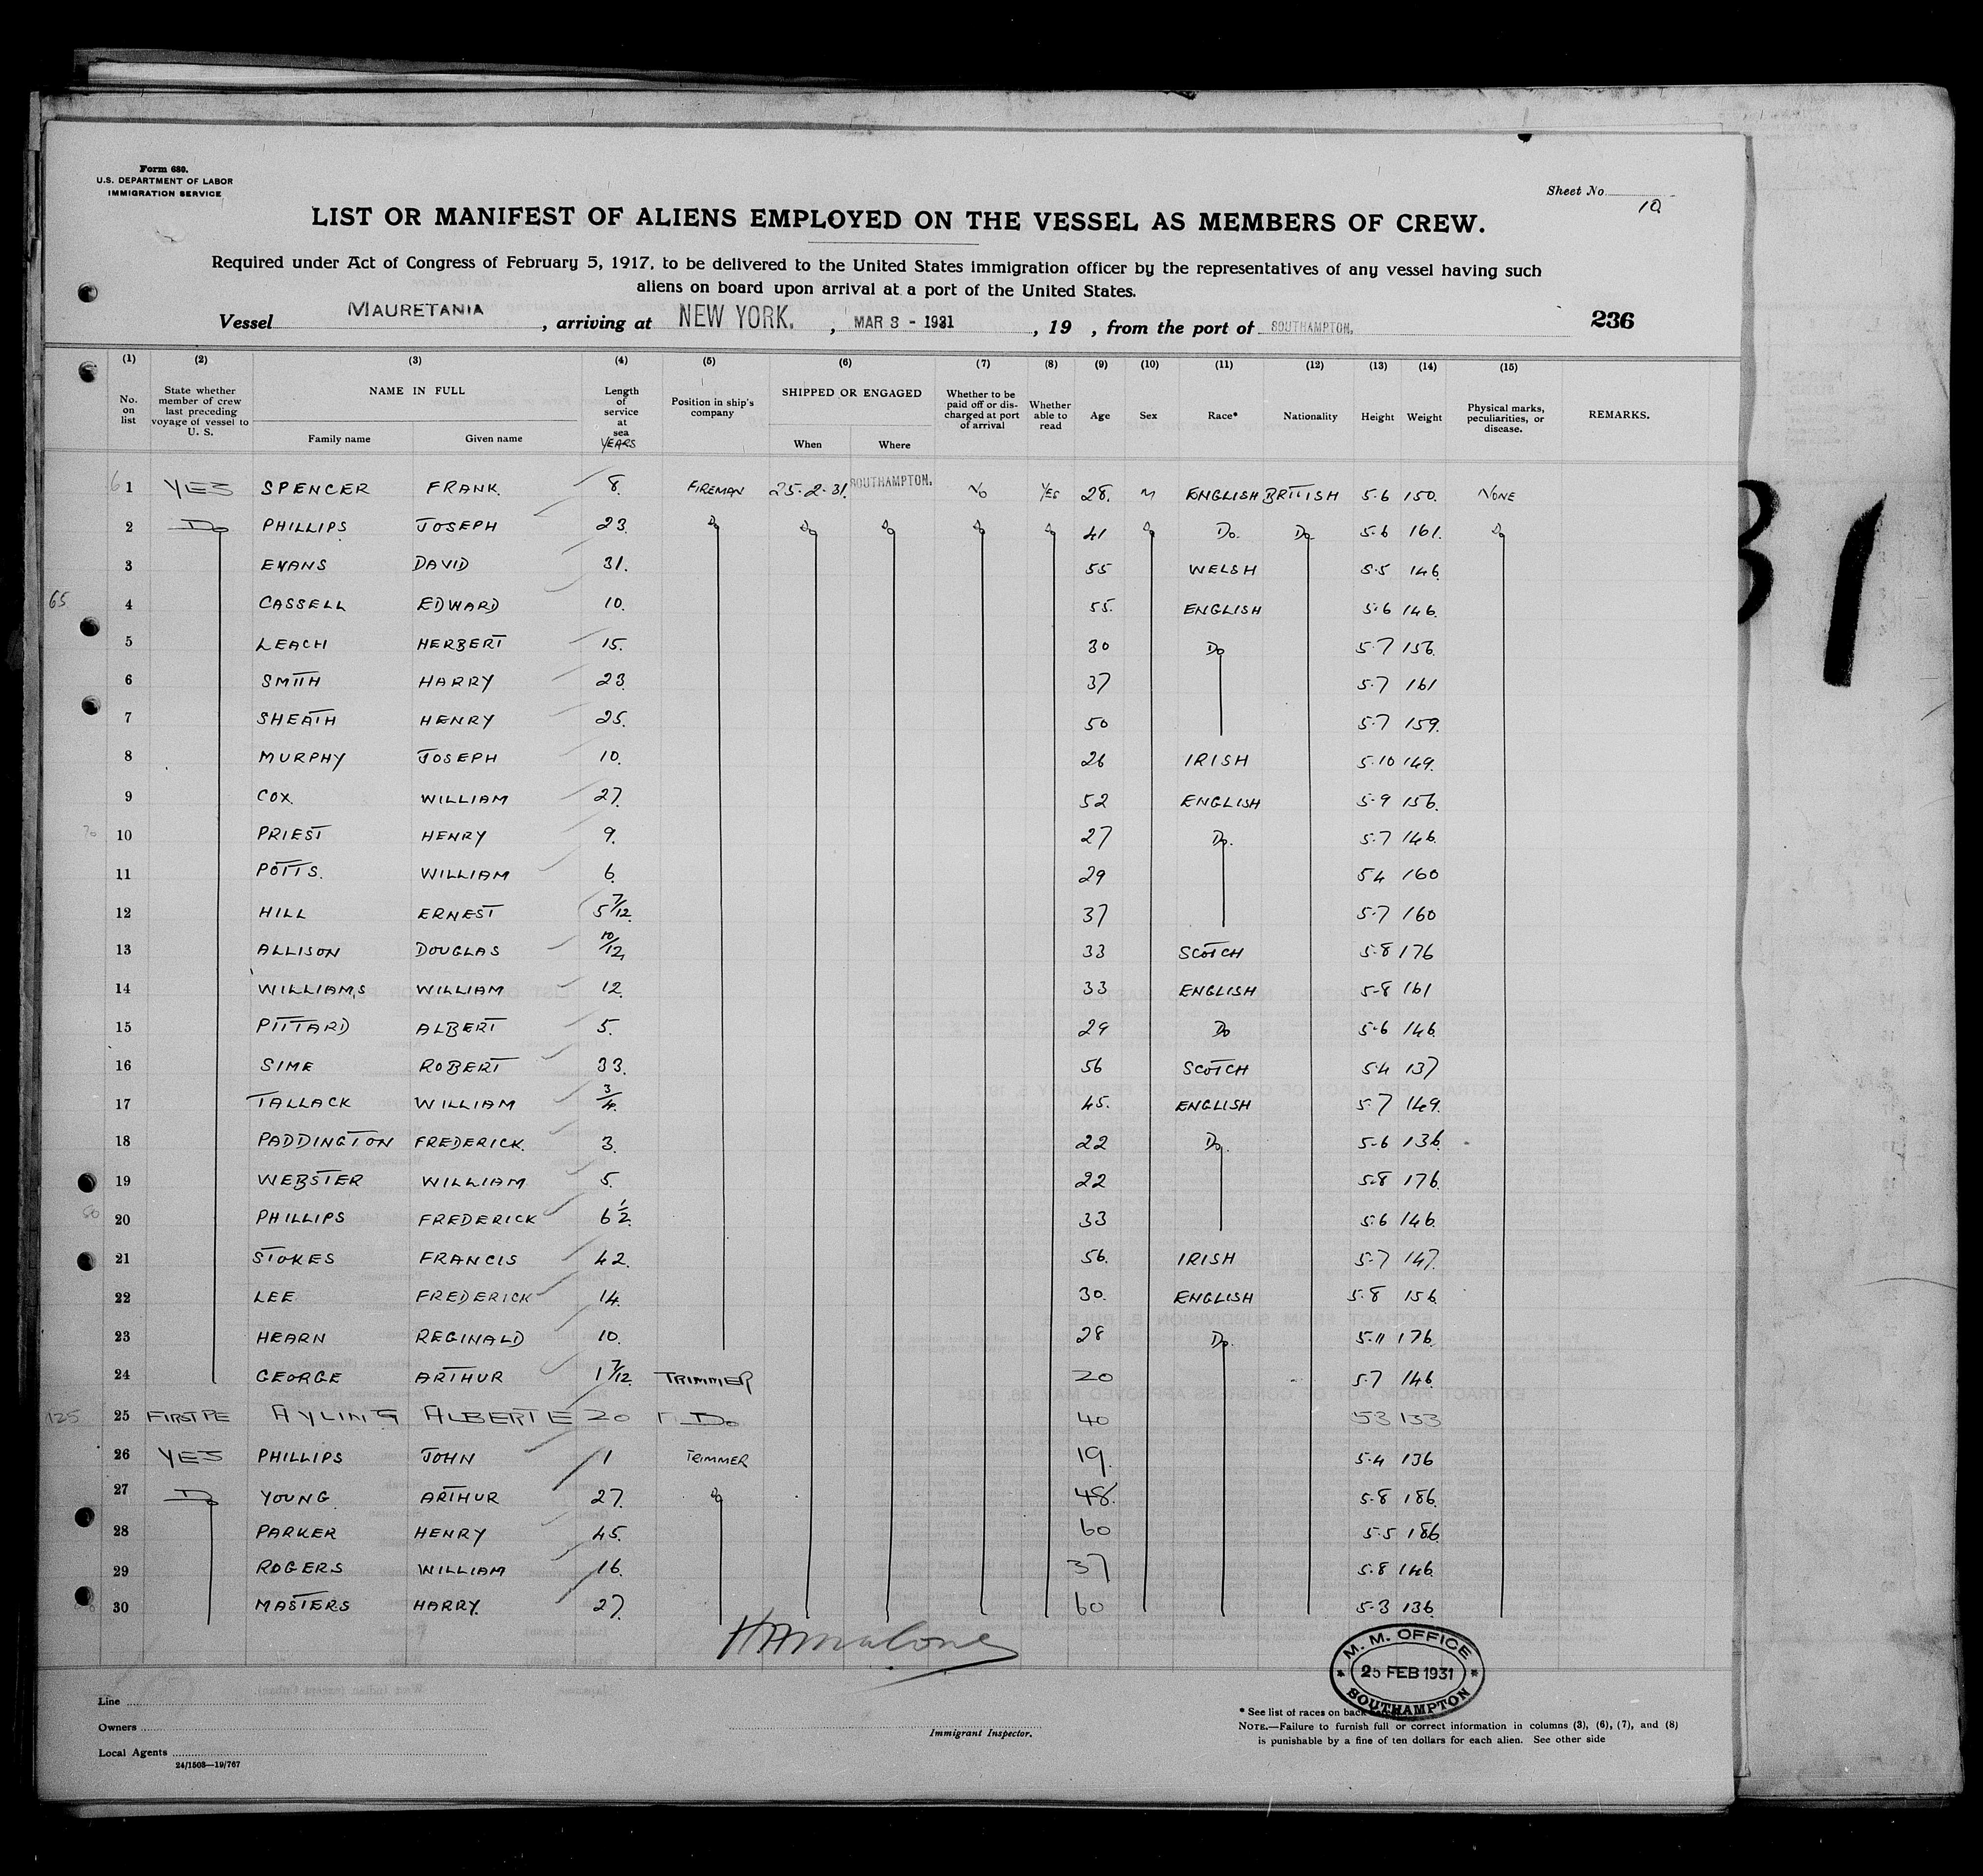 Form 680.
U.S. DEPARTMENT OF LABOR
IMMIGRATION SERVICE
Sheet No. 10
LIST OR MANIFEST OF ALIENS EMPLOYED ON THE VESSEL AS MEMBERS OF CREW.
Required under Act of Congress of February 5, 1917, to be delivered to the United States immigration officer by the representatives of any vessel having such
aliens on board upon arrival at a port of the United States.
Vessel MAURETANIA, arriving at NEW YORK., MAR 3 - 1931, 19 , from the port of SOUTHAMPTON. 236
(1) (2) (3) (4) (5) (6) (7) (8) (9) (10) (11) (12) (13) (14) (15)
No. on list State whether member of crew last preceding voyage of vessel to U. S. NAME IN FULL Family name Given name Length of service at sea YEARS Position in ship's company SHIPPED OR ENGAGED When Where Whether to be paid off or discharged at port of arrival Whether able to read Age Sex Race* Nationality Height Weight Physical marks, peculiarities, or disease. REMARKS.
1 YES SPENCER FRANK. 8. FIREMAN 25.2.31. SOUTHAMPTON. NO YES 28. M ENGLISH BRITISH 5.6 150. NONE
2 Do PHILLIPS JOSEPH 23. Do Do Do Do Do 41 Do Do. Do 5.6 161. Do
3 EVANS DAVID 31. 55 WELSH 5.5 146.
65 4 CASSELL EDWARD 10. 55. ENGLISH 5.6 146.
5 LEACH HERBERT 15. 30 Do 5.7 156.
6 SMITH HARRY 23. 37 5.7 161
7 SHEATH HENRY 25. 50 5.7 159.
8 MURPHY JOSEPH 10. 26 IRISH 5.10 149.
9 COX. WILLIAM 27. 52 ENGLISH 5.9 156.
70 10 PRIEST HENRY 9. 27 Do. 5.7 146.
11 POTTS. WILLIAM 6. 29 5.4 160
12 HILL ERNEST 5 7/12. 37 5.7 160
13 ALLISON DOUGLAS 10/12, 33 SCOTCH 5.8 176
14 WILLIAMS WILLIAM 12. 33 ENGLISH 5.8 161
15 PITTARD ALBERT 5. 29 Do 5.6 146.
16 SIME ROBERT 33. 56 SCOTCH 5.4 137
17 TALLACK WILLIAM 3/4. 45. ENGLISH 5.7 149.
18 PADDINGTON FREDERICK. 3. 22 Do. 5.6 136.
19 WEBSTER WILLIAM 5. 22 5.8 176.
20 PHILLIPS FREDERICK 6 1/2. 33 5.6 146.
21 STOKES FRANCIS 42. 56. IRISH 5.7 147.
22 LEE FREDERICK 14. 30. ENGLISH 5.8 156.
23 HEARN REGINALD 10. 28 Do. 5.11 176.
24 GEORGE ARTHUR 1 7/12. TRIMMER 20 5.7 146.
125 25 FIRST PE AYLING ALBERT E 20 Do 40 53 133
26 YES PHILLIPS JOHN 1 TRIMMER 19. 5.4 136
27 Do YOUNG. ARTHUR 27. Do 48. 5.8 186.
28 PARKER HENRY 45. 60 5.5 186
29 ROGERS WILLIAM 16. 37 5.8 146.
30 MASTERS HARRY. 27. 60 5.3 136.
M. M. OFFICE
25 FEB 1931
SOUTHAMPTON
Line
Owners
Local Agents
24/1503—19/767
Immigrant Inspector.
* See list of races on back
NOTE.—Failure to furnish full or correct information in columns (3), (6), (7), and (8)
is punishable by a fine of ten dollars for each alien. See other side
31